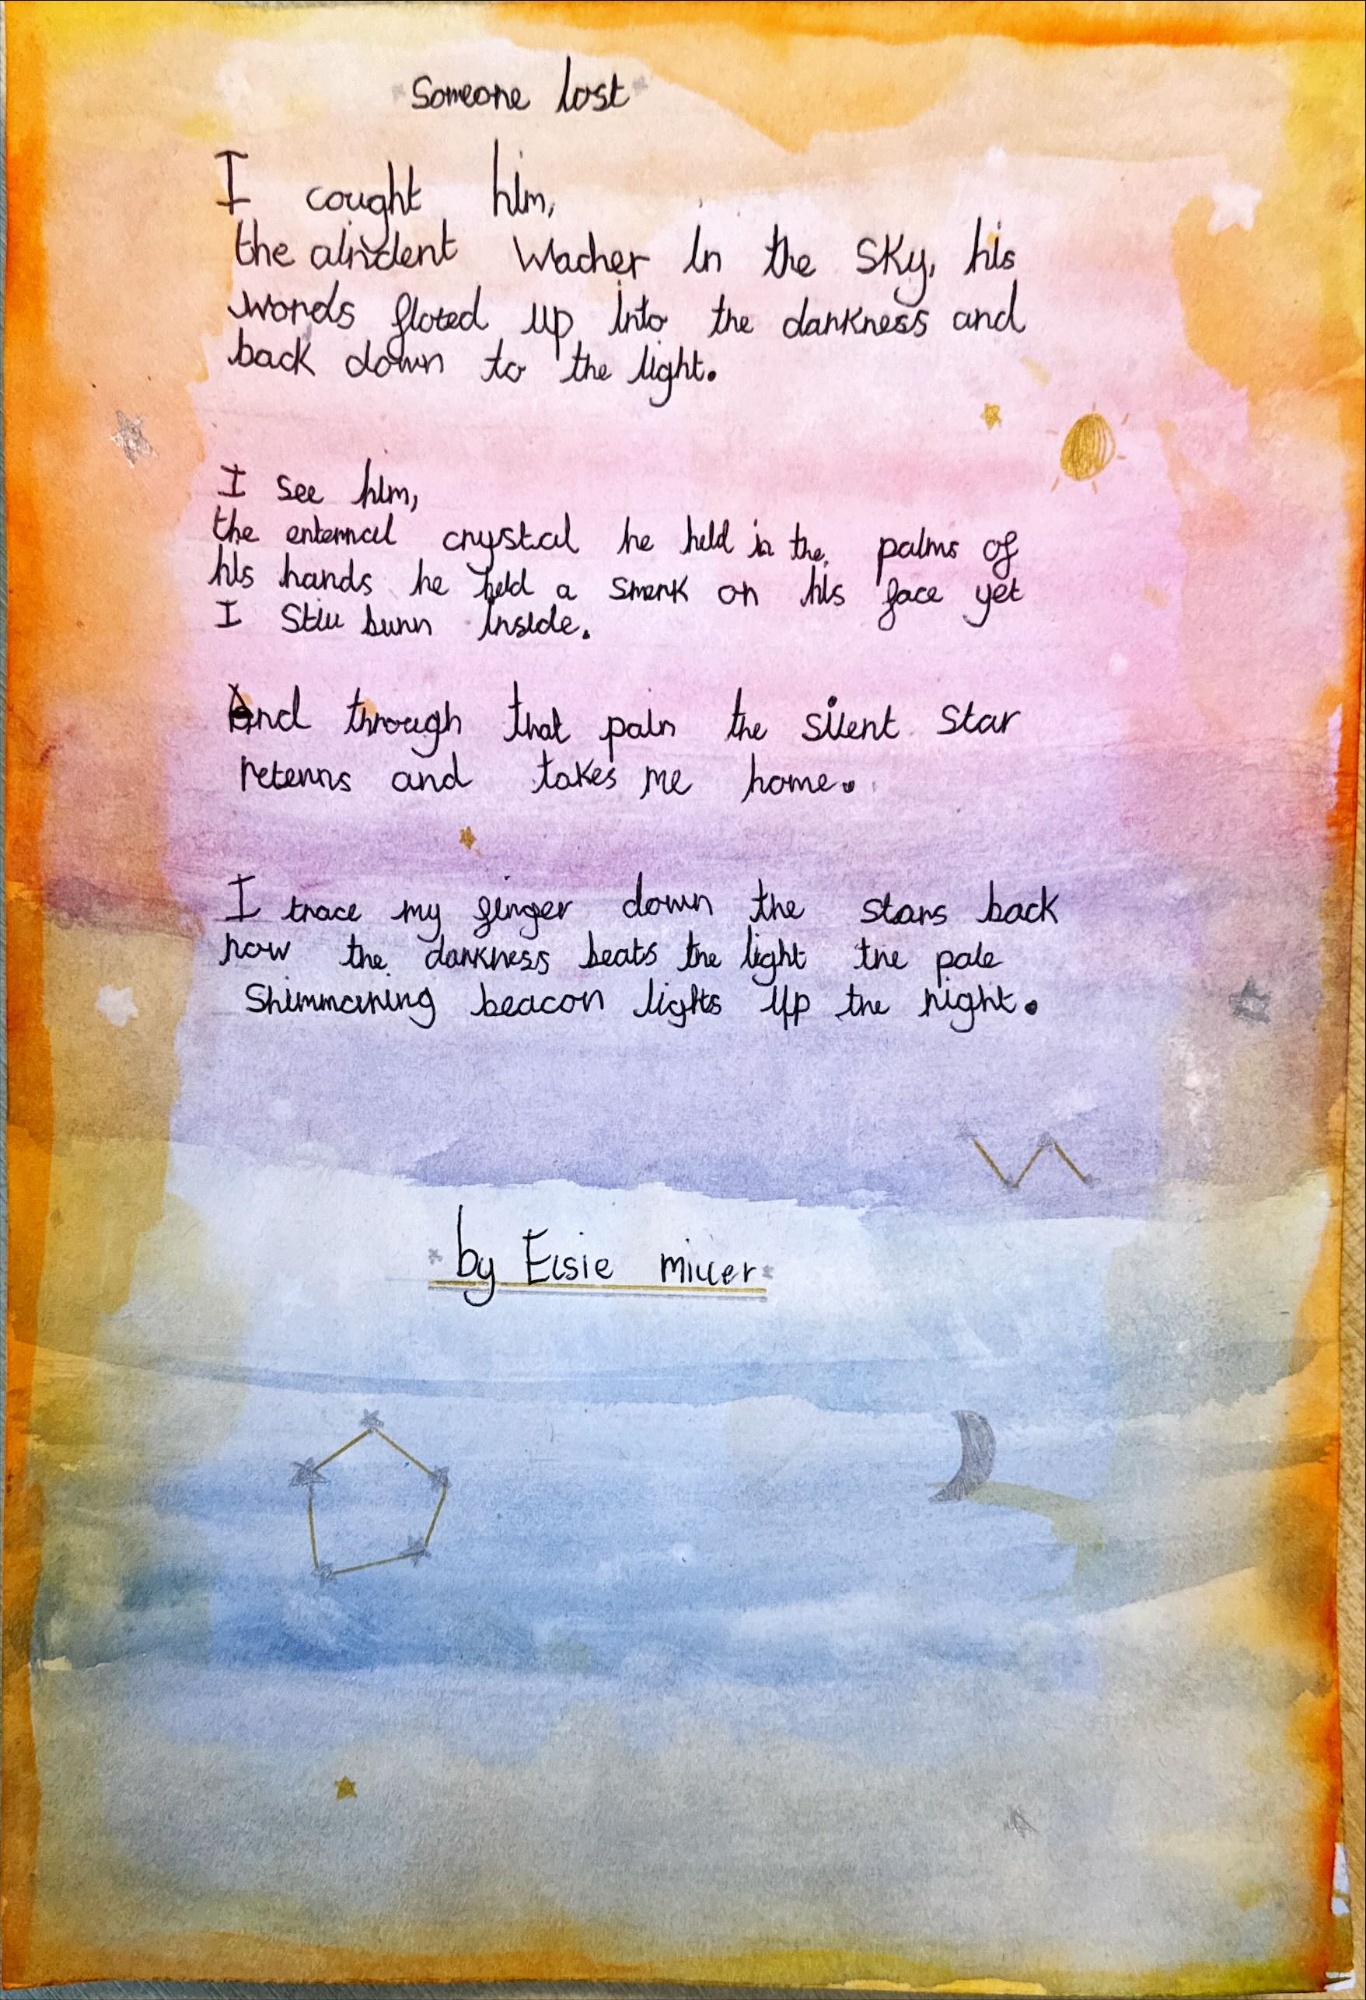 Someone lost
I cought him,
the aincient Wacher in the sky, his
words floted up into the darkness and
back down to the light.
I see him,
the enternal crystal he held in the palms of
his hands he held a smerk on his face yet
I still burn inside.
And through that pain the silent star
reterns and takes me home.
I trace my finger down the stars back
now the darkness beats the light the pale
Shimmering beacon lights up the night.
by Elsie miller